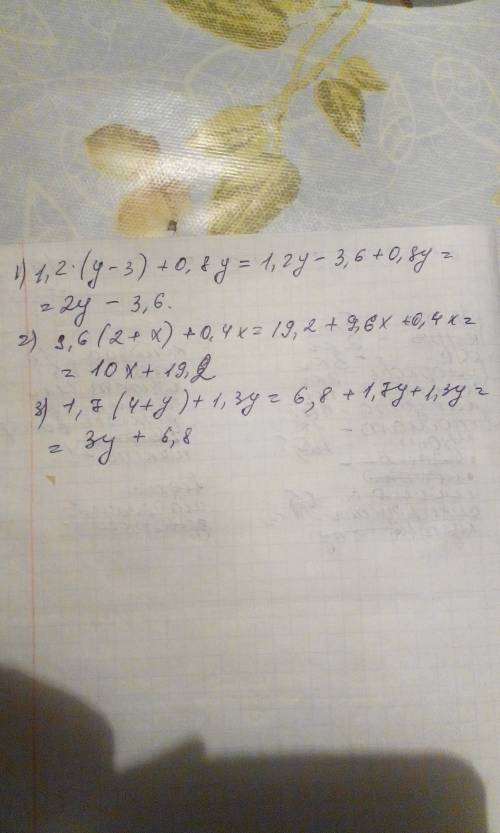 1) 1,2·(y-3)+0,8y=1,2y-3,6+0,8y=
=2y-3,6.
2) 9,6(2+x)+0,4x=19,2+9,6x+0,4x=
=10x+19,2
3) 1,7(4+y)+1,3y=6,8+1,7y+1,3y=
=3y+6,8